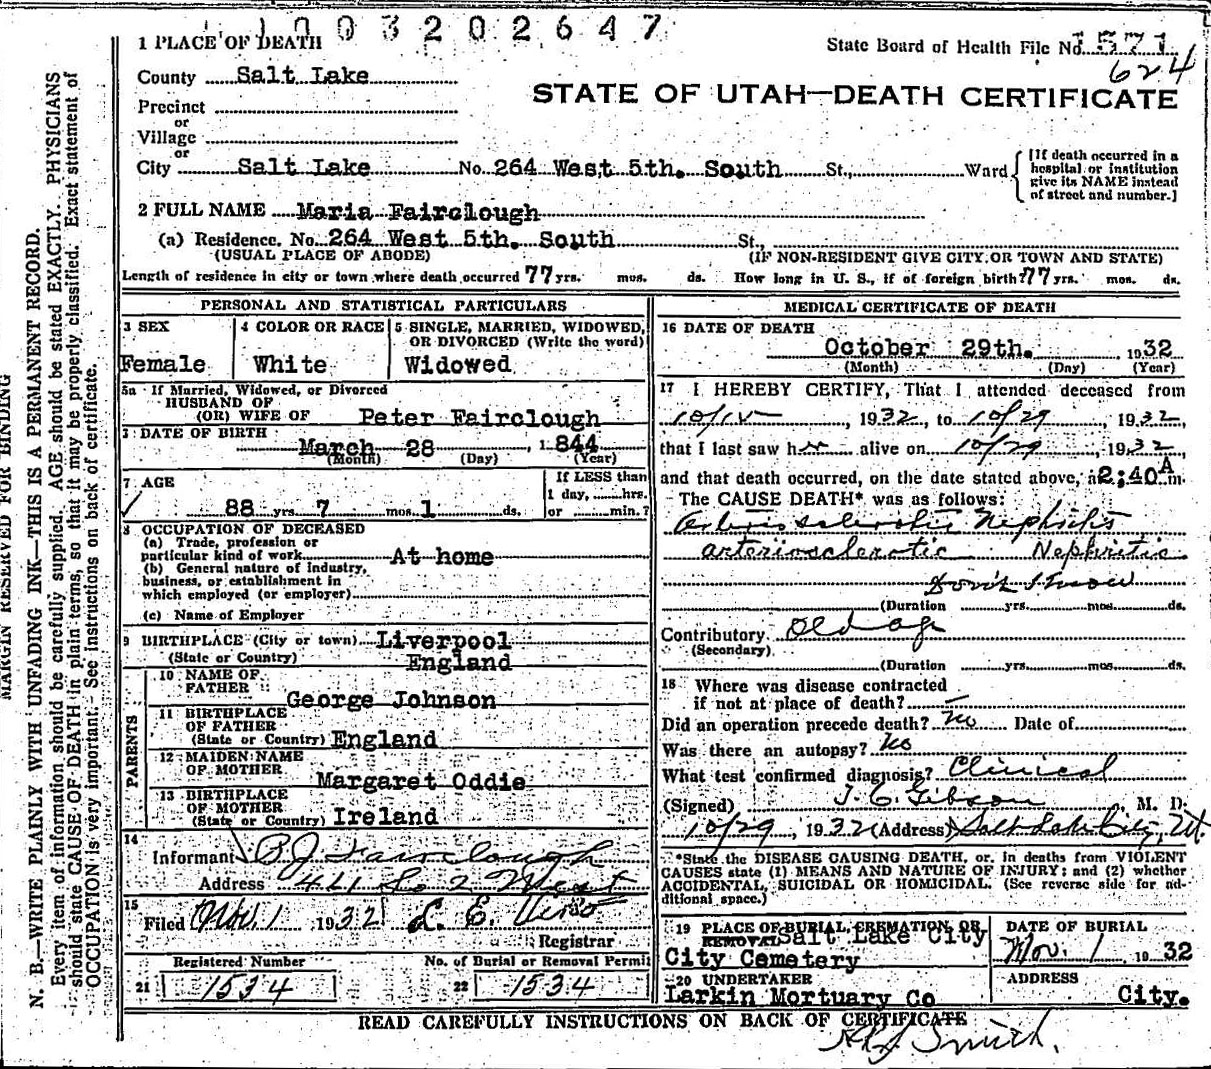 1003202647
1 PLACE OF DEATH
State Board of Health File No. 1571
624
County Salt Lake
STATE OF UTAH—DEATH CERTIFICATE
Precinct
or
Village
or
City Salt Lake No. 264 West 5th. South St., Ward
[If death occurred in a hospital or institution give its NAME instead of street and number.]
2 FULL NAME Maria Fairclough
(a) Residence. No. 264 West 5th. South St.,
(USUAL PLACE OF ABODE) (IF NON-RESIDENT GIVE CITY OR TOWN AND STATE)
Length of residence in city or town where death occurred 77 yrs. mos. ds. How long in U. S., if of foreign birth? 77 yrs. mos. ds.
PERSONAL AND STATISTICAL PARTICULARS
3 SEX
Female
4 COLOR OR RACE
White
5 SINGLE, MARRIED, WIDOWED, OR DIVORCED (Write the word)
Widowed
5a If Married, Widowed, or Divorced
HUSBAND OF
(OR) WIFE OF Peter Fairclough
DATE OF BIRTH
March 28 , 1844
(Month) (Day) (Year)
7 AGE
88 yrs. 7 mos. 1 ds.
If LESS than
1 day, hrs.
or min.?
8 OCCUPATION OF DECEASED
(a) Trade, profession or
particular kind of work At home
(b) General nature of industry,
business, or establishment in
which employed (or employer)
(c) Name of Employer
9 BIRTHPLACE (City or town) Liverpool
(State or Country) England
PARENTS
10 NAME OF
FATHER George Johnson
11 BIRTHPLACE
OF FATHER
(State or Country) England
12 MAIDEN NAME
OF MOTHER Margaret Oddie
13 BIRTHPLACE
OF MOTHER
(State or Country) Ireland
14
Informant P.J. Fairclough
Address 441 So 2 West
15
Filed Nov. 1 1932
Registrar
Registered Number
21 1534
No. of Burial or Removal Permit
22 1534
MEDICAL CERTIFICATE OF DEATH
16 DATE OF DEATH
October 29th. 1932
(Month) (Day) (Year)
17 I HEREBY CERTIFY, That I attended deceased from
10/15, 1932, to 10/29, 1932,
that I last saw her alive on 10/29, 1932
and that death occurred, on the date stated above, at 2:40 A m.
The CAUSE DEATH* was as follows:
Arteriosclerotic Nephritis
arteriosclerotic Nephritic
(Duration yrs. mos. ds.
Contributory Old age
(Secondary)
(Duration yrs. mos. ds.
18 Where was disease contracted
if not at place of death?
Did an operation precede death? No Date of
Was there an autopsy? No
What test confirmed diagnosis? Clinical
(Signed) J. C. Gibson, M. D.
10/29, 1932 (Address) Salt Lake City, Ut.
*State the DISEASE CAUSING DEATH, or, in deaths from VIOLENT
CAUSES state (1) MEANS AND NATURE OF INJURY; and (2) whether
ACCIDENTAL, SUICIDAL OR HOMICIDAL. (See reverse side for additional space.)
19 PLACE OF BURIAL, CREMATION, OR
REMOVAL Salt Lake City
City Cemetery
DATE OF BURIAL
Nov. 1 1932
20 UNDERTAKER
Larkin Mortuary Co
ADDRESS
City.
READ CAREFULLY INSTRUCTIONS ON BACK OF CERTIFICATE
Smith.
MARGIN RESERVED FOR BINDING
N. B.—WRITE PLAINLY WITH UNFADING INK—THIS IS A PERMANENT RECORD.
Every item of information should be carefully supplied. AGE should be stated EXACTLY. PHYSICIANS
should state CAUSE OF DEATH in plain terms, so that it may be properly classified. Exact statement of
OCCUPATION is very important. See instructions on back of certificate.